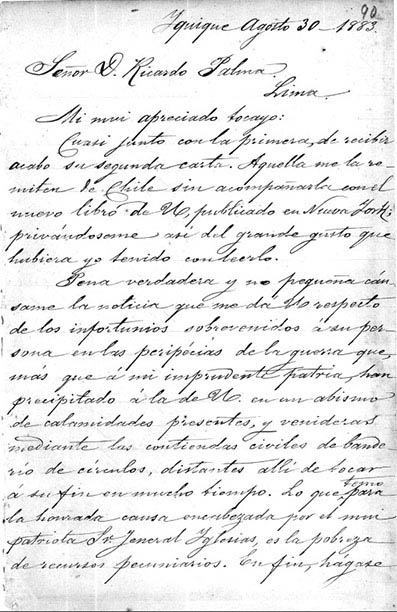 90
Iquique Agosto 30 1883.
Señor D. Ricardo Palma.
Lima.
Mi mui apreciado tocayo:
Cuasi junto con la primera, de recibir
acabo su segunda carta. Aquella me la re-
miten de Chile sin acompañarla con el
nuevo libro de U, publicado en Nueva York;
privándoseme así del grande gusto que
hubiera yo tenido con leerlo.
Pena verdadera y no pequeña cáu-
same la noticia que me dá U respecto
de los infortunios sobrevenidos á su per-
sona en las peripécias de la guerra que,
más que á mi imprudente patria, han
precipitado á la de U. en un abismo
de calamidades presentes, y venideras
mediante las contiendas civiles de bande-
río de círculos, distantes alli de tocar
a su fin en mucho tiempo. Lo que temo para
la honrada causa encabezada por el mui
patriota Sr. General Iglesias, es la pobreza
de recursos pecuniarios. En fin, hágase